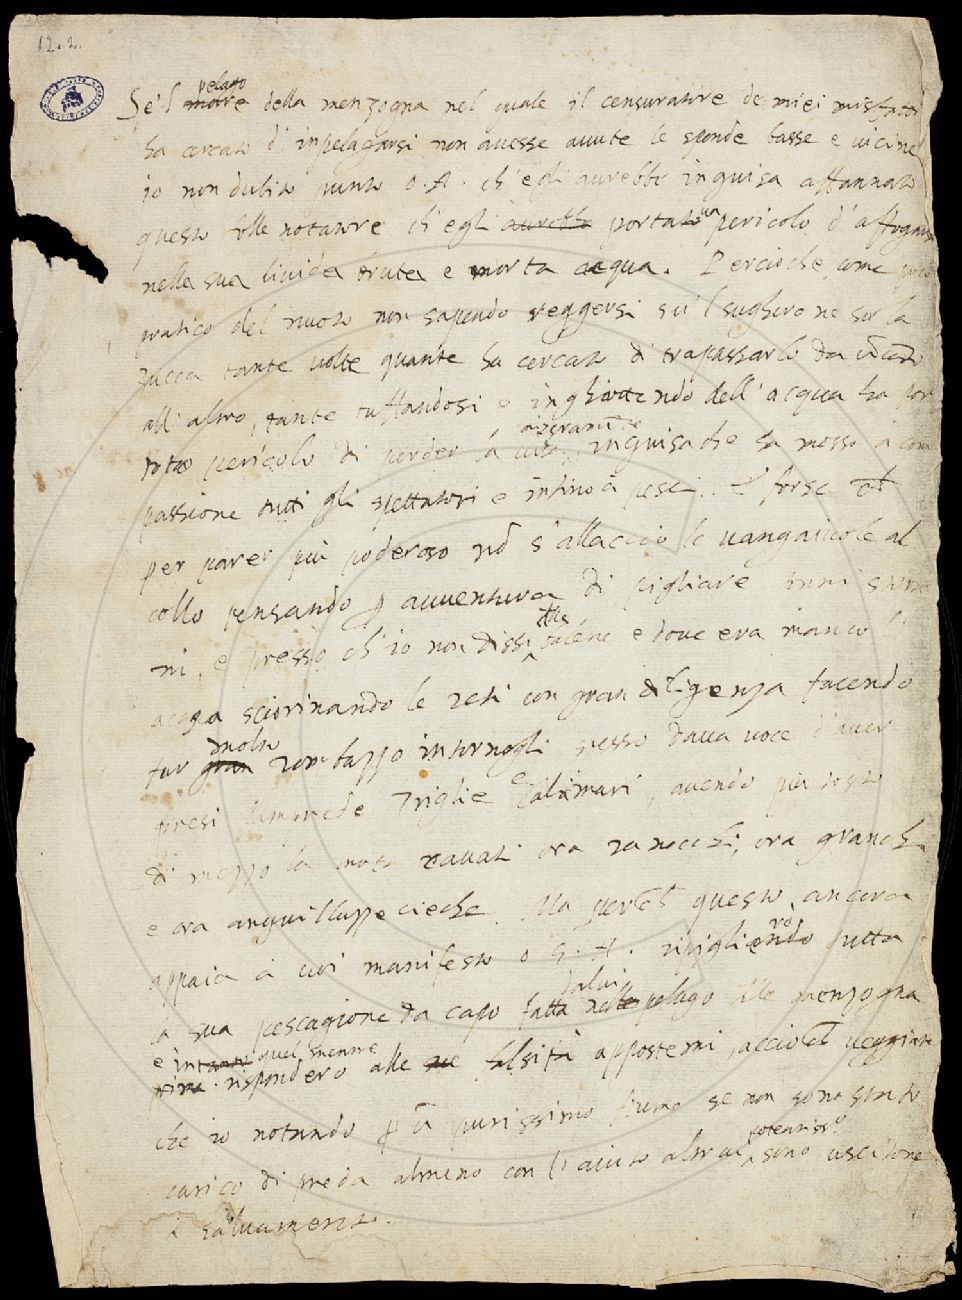 12.2.
pelago
Se'l mare della menzogna nel quale il censuratore de miei misfatti
ha cercato d'inpelagarsi non avesse avute le sponde basse e vicine
io non dubito punto o. A. ch'egli avrebbe in guisa affannato
questo folle notatore ch'egli avrebbe portato pericolo d'affogare
nella sua livida bruta e morta acqua. Percioche come poco
pratico del nuoto non sapendo reggersi su'l sughero ne su la
zucca tante volte quante ha cercato di trapassarlo da
all'altro, tante tuffandosi e inghiottendo dell'acqua ha por
tato pericolo di perder la vita, in guisa che ha mosso a com
passione tutti gli spettatori e infino a pesci. E forse
per parer più poderoso s'allacciò le vangaiuole al
collo pensando p avventura di pigliare
ni, e presso ch'io non dissi balene e dove era manco l'
acqua sciorinando le reti con gran diligenza facendo
molto
far gran rombazzo intornogli spesso dava voce d'aver
presi lamprede Triglie e Calamari, avendo più tosto
di mezzo la mota cavati ora ranocchi, ora granchi
e ora anguilluzze cieche. Ma questo ancora
appaia a voi manifesto o G. A. ripiglierò tutta
la sua pescagione da capo fatta nelle pelago della menzogna
e intanto
risponderò alle falsità appostemi, acciò veggiate
che io notando p purissimo fiume se non sono stato
carico di preda almeno con l'aiuto altrui sono uscitone
a salvamento.